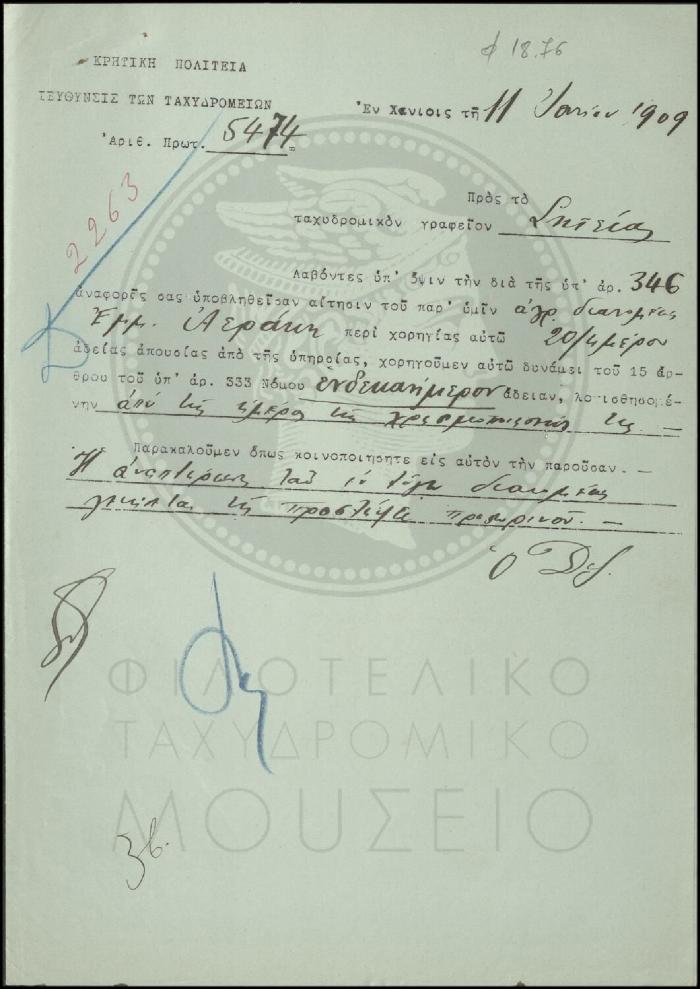 φ 18.76
ΚΡΗΤΙΚΗ ΠΟΛΙΤΕΙΑ
ΙΕΥΘΥΝΣΙΣ ΤΩΝ ΤΑΧΥΔΡΟΜΕΙΩΝ
Ἐν Χανίοις τῇ 11 Ἰουνίου 1909
Ἀριθ. Πρωτ. 5474
2263
Πρὸς τὸ
ταχυδρομικὸν γραφεῖον Σητείας
Λαβόντες ὑπ' ὄψιν τὴν διὰ τῆς ὑπ' ἀρ. 346
ἀναφορᾶς σας ὑποβληθεῖσαν αἴτησιν τοῦ παρ' ὑμῖν ἀγρ. διανομέως
Ἐμμ. Ἀεράκη περὶ χορηγίας αὐτῷ 20/ημέρου
ἀδείας ἀπουσίας ἀπὸ τῆς ὑπηρεσίας, χορηγοῦμεν αὐτῷ δυνάμει τοῦ 15 ἄρ-
θρου τοῦ ὑπ' ἀρ. 333 Νόμου ἑνδεκαήμερον ἄδειαν, λογισθησομέ-
νην ἀπὸ τῆς ἡμέρας τῆς χρησιμοποιήσεώς της. —
Παρακαλοῦμεν ὅπως κοινοποιήσητε εἰς αὐτὸν τὴν παροῦσαν. —
Ἡ διανομέως
τῆς προσωρινοῦ. —
Ὁ Δ
ΦΙΛΟΤΕΛΙΚΟ
ΤΑΧΥΔΡΟΜΙΚΟ
ΜΟΥΣΕΙΟ